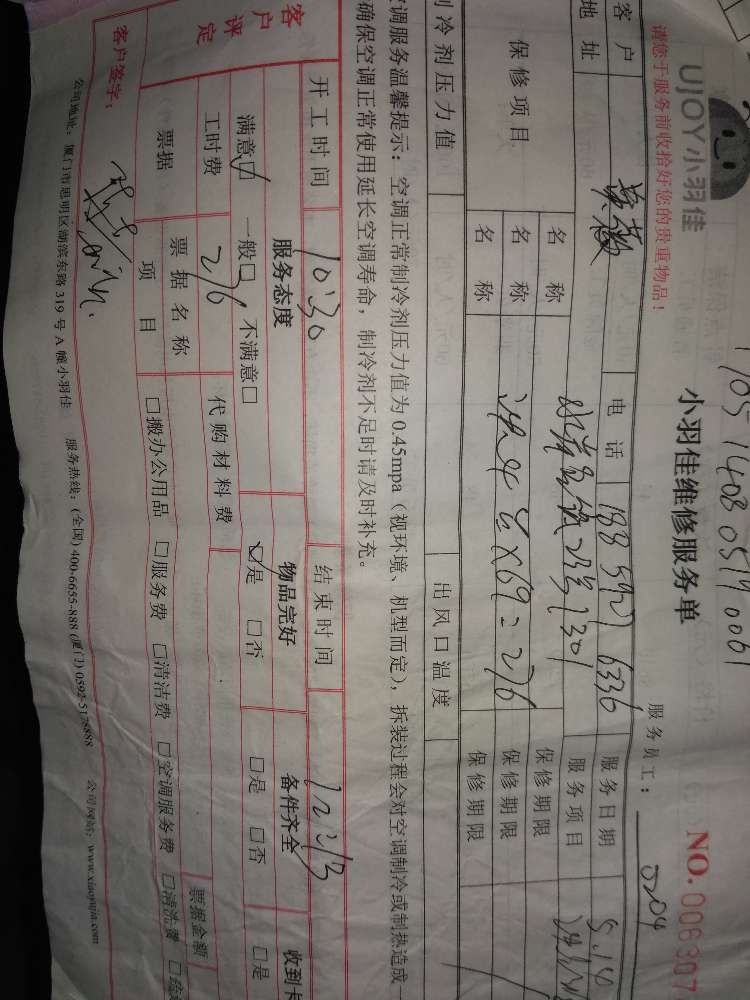 170514080519 0061
UJOY小羽佳
小羽佳维修服务单
NO. 006307
请您于服务前收拾好您的贵重物品！
服务员工：
0204
客户
电话
188 5927 6336
服务日期
5.14
地址
1301
服务项目
保修项目
名称
保修期限
名称
4台×69=276
保修期限
名称
保修期限
制冷剂压力值
出风口温度
空调服务温馨提示：空调正常制冷剂压力值为0.45mpa（视环境、机型而定），拆装过程会对空调制冷或制热造成一
确保空调正常使用延长空调寿命，制冷剂不足时请及时补充。
开工时间
10:30
结束时间
客户评定
服务态度
物品完好
备件齐全
收到卡
满意☑ 一般□ 不满意□
☑是 □否
□是 □否
□是
工时费
276
代购材料费
票据
票据名称
票据金额
项目
□搬办公用品 □服务费 □清洁费 □空调服务费 □清洗费
客户签字：
公司地址：厦门市思明区湖滨东路 319 号 A 幢小羽佳 服务热线：(全国) 400-6655-888 (厦门) 0592-5178888 公司网站：www.xiaoyujia.com